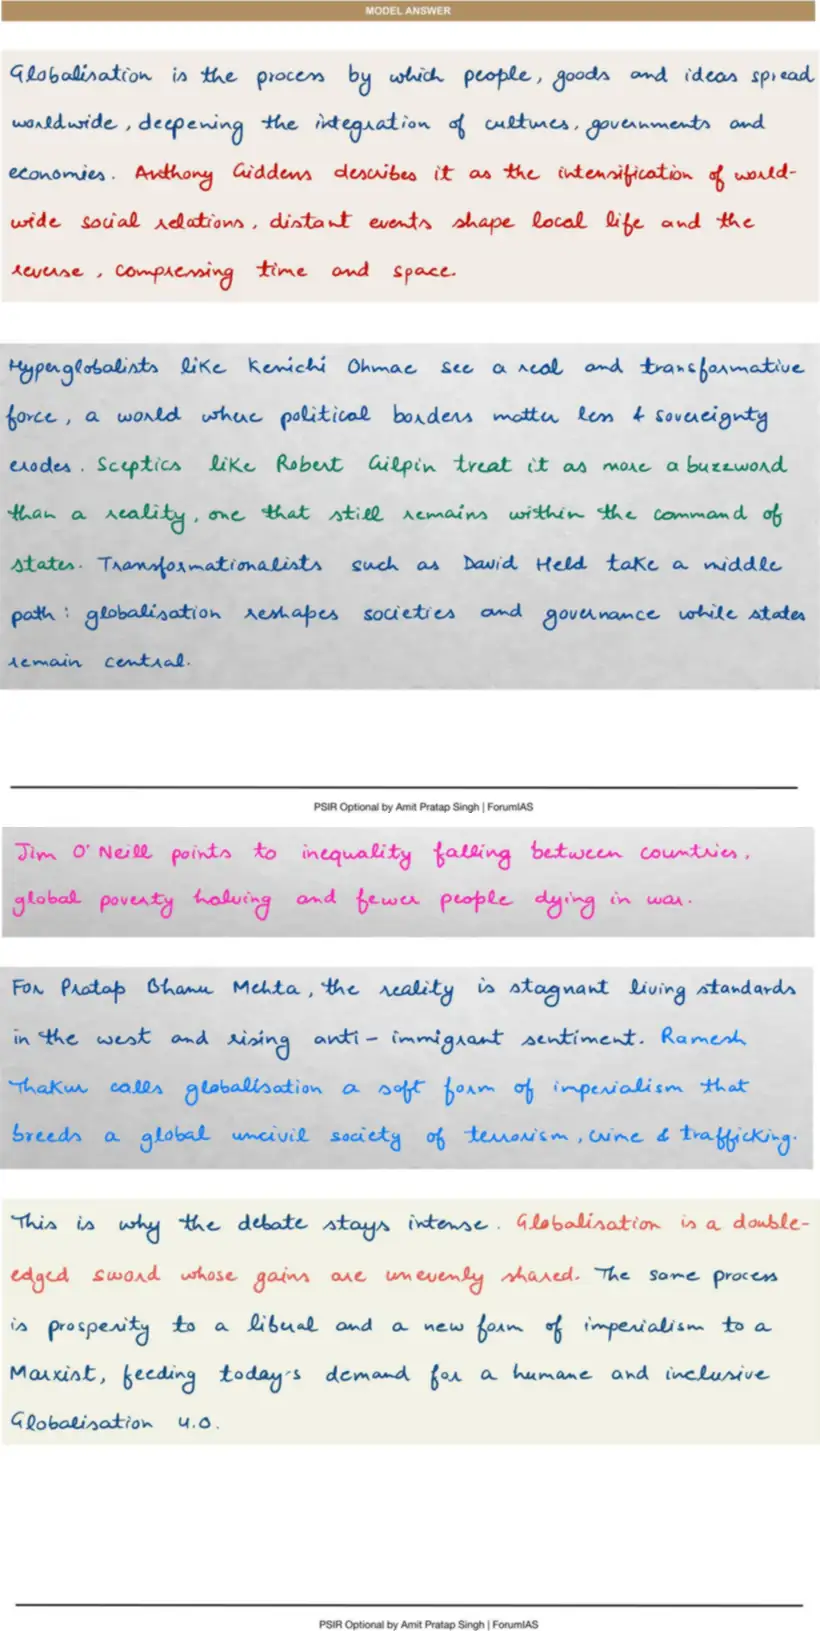 MODEL ANSWER
Globalisation is the process by which people, goods and ideas spread
worldwide, deepening the integration of cultures, governments and
economies. Anthony Giddens describes it as the intensification of world-
wide social relations, distant events shape local life and the
reverse, compressing time and space.
Hyperglobalists like Kenichi Ohmae see a real and transformative
force, a world where political borders matter less & sovereignty
erodes. Sceptics like Robert Gilpin treat it as more a buzzword
than a reality, one that still remains within the command of
states. Transformationalists such as David Held take a middle
path: globalisation reshapes societies and governance while states
remain central.
PSIR Optional by Amit Pratap Singh | ForumIAS
Jim O'Neill points to inequality falling between countries,
global poverty halving and fewer people dying in war.
For Pratap Bhanu Mehta, the reality is stagnant living standards
in the west and rising anti-immigrant sentiment. Ramesh
Thakur calls globalisation a soft form of imperialism that
breeds a global uncivil society of terrorism, crime & trafficking.
This is why the debate stays intense. Globalisation is a double-
edged sword whose gains are unevenly shared. The same process
is prosperity to a liberal and a new form of imperialism to a
Marxist, feeding today's demand for a humane and inclusive
Globalisation 4.0.
PSIR Optional by Amit Pratap Singh | ForumIAS